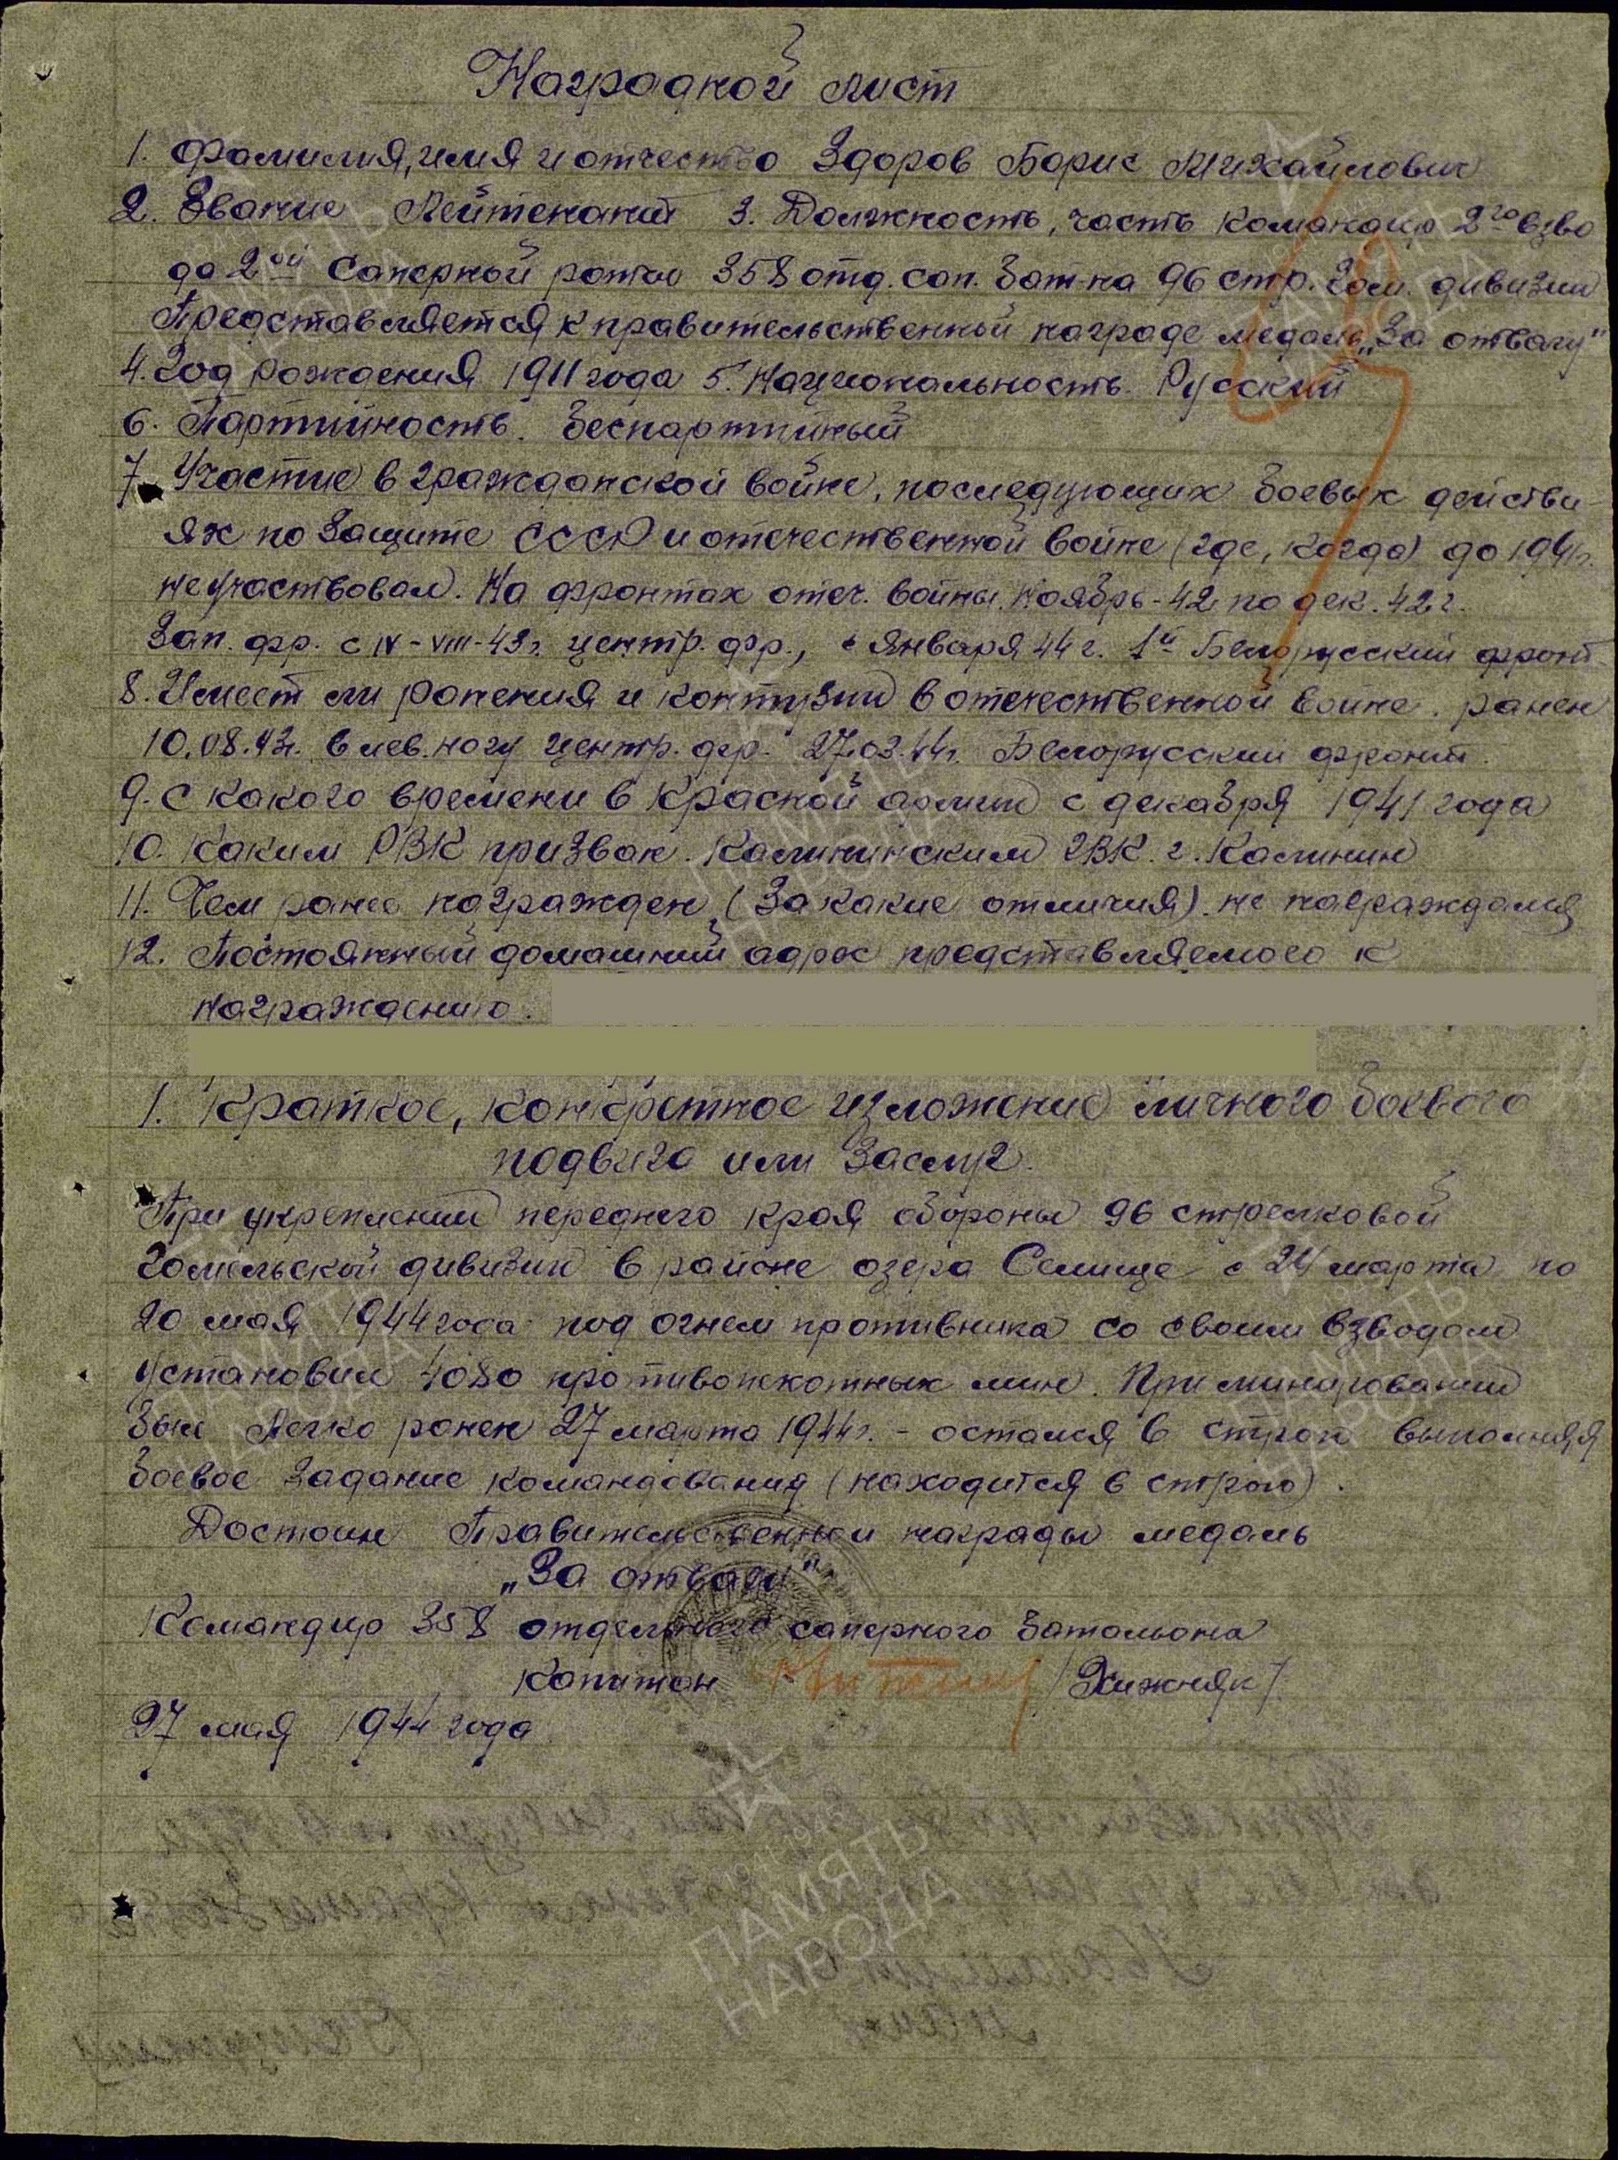 Наградной лист
1. Фамилия, имя и отчество Здоров Борис Михайлович
2. Звание Лейтенант 3. Должность, часть командир 2го взво
да 2ой саперной роты 358 отд. сап. бат-на 96 стр. Гом. дивизии
Представляется к правительственной награде медаль „За отвагу"
4. Год рождения 1911 года 5. Национальность. Русский
6. Партийность. беспартийный
7. Участие в гражданской войне, последующих боевых действи-
ях по защите СССР и отечественной войне (где, когда) до 1941г.
не участвовал. На фронтах отеч. войны. Ноябрь-42 по дек. 42 г.
Зап. фр. с IV-VIII-43г. центр. фр., с января 44 г. 1й Белорусский фронт.
8. Имеет ли ранения и контузии в отечественной войне. ранен
10.08.43г. в лев. ногу центр. фр. 27.03.44г. Белорусский фронт.
9. С какого времени в Красной армии с декабря 1941 года
10. Каким РВК призван. Калининским ГВК. г. Калинин
11. Чем ранее награжден (за какие отличия). не награждался
12. Постоянный домашний адрес представляемого к
награждению.
1. Краткое, конкретное изложение личного боевого
подвига или заслуг.
При укреплении переднего края обороны 96 стрелковой
Гомельской дивизии в районе озера Селище с 24 марта по
20 мая 1944 года под огнем противника со своим взводом
установил 4080 противопехотных мин. При минировании
был легко ранен 27 марта 1944г. - остался в строю выполняя
боевое задание командования (находится в строю).
Достоин Правительственной награды медаль
„За отвагу"
Командир 358 отдельного саперного батальона
Капитан /Хижняк/
27 мая 1944 года
ПАМЯТЬ
НАРОДА